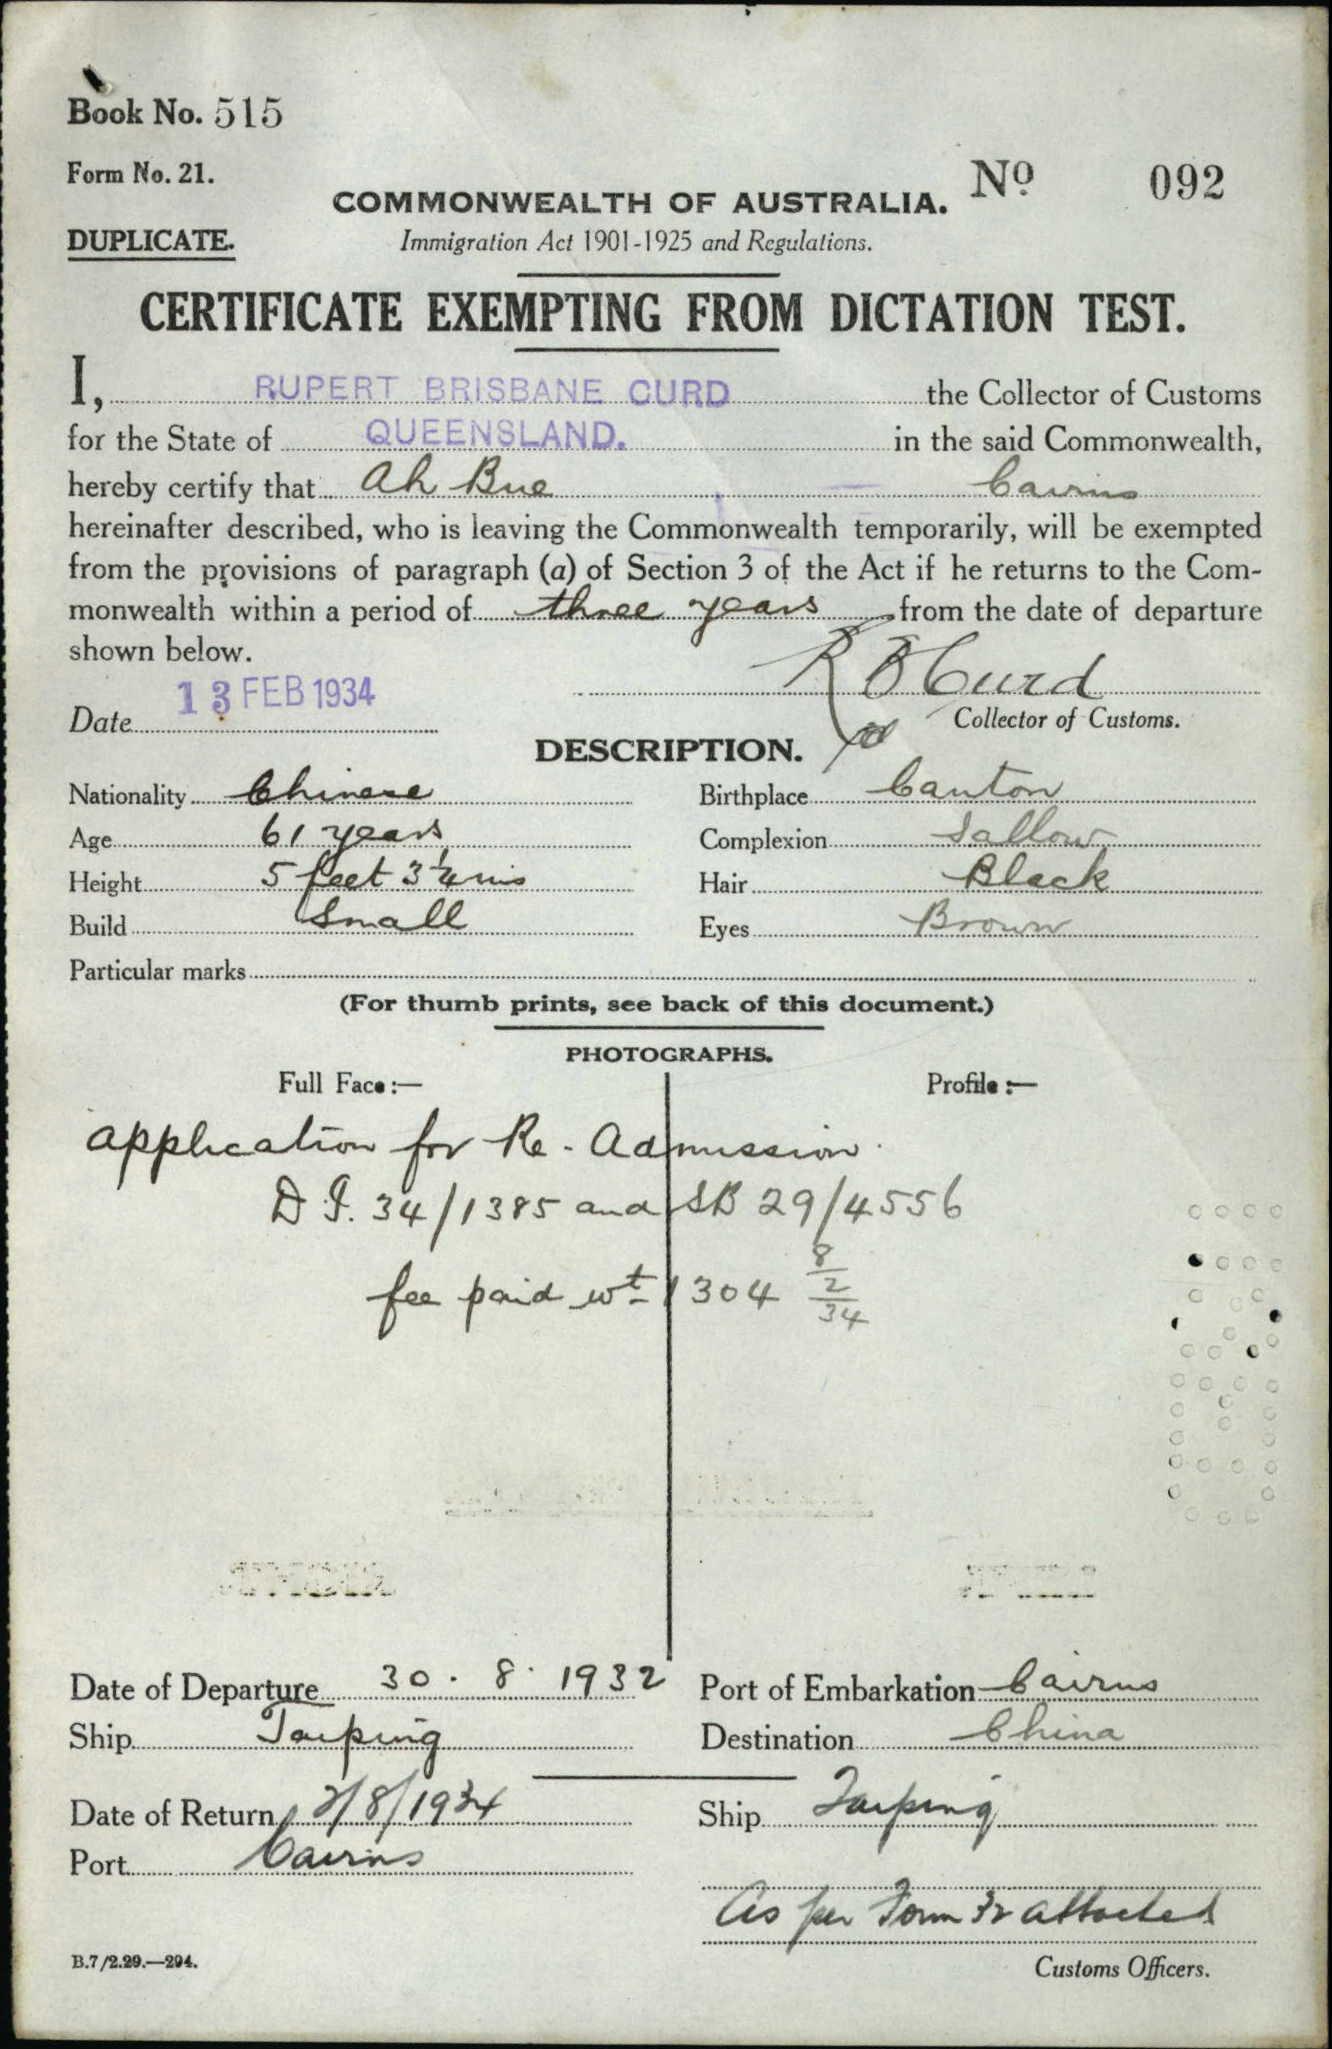 Book No. 515
Form No. 21.
COMMONWEALTH OF AUSTRALIA. No 092
DUPLICATE.
Immigration Act 1901-1925 and Regulations.
CERTIFICATE EXEMPTING FROM DICTATION TEST.
I, RUPERT BRISBANE CURD the Collector of Customs
for the State of QUEENSLAND. in the said Commonwealth,
hereby certify that Ah Bue Cairns
hereinafter described, who is leaving the Commonwealth temporarily, will be exempted
from the provisions of paragraph (a) of Section 3 of the Act if he returns to the Com-
monwealth within a period of three years from the date of departure
shown below.
R B Curd
Date 13 FEB 1934
Collector of Customs.
DESCRIPTION.
Nationality Chinese Birthplace Canton
Age 61 years Complexion Sallow
Height 5 feet 3 1/4 ins Hair Black
Build Small Eyes Brown
Particular marks
(For thumb prints, see back of this document.)
PHOTOGRAPHS.
Full Face :— Profile :—
Application for Re-Admission.
D.I. 34/1385 and SB 29/4556
fee paid wt 1304 8/2/34
Date of Departure 30. 8. 1932 Port of Embarkation Cairns
Ship Taiping Destination China
Date of Return 2/8/1934 Ship Taiping
Port Cairns
As per Form 32 attached
B.7/2.29.—294.
Customs Officers.